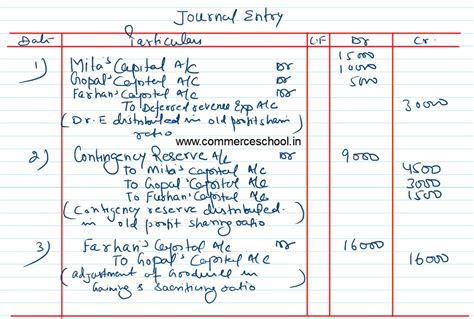 Journal Entry
Date Particulars L.F Dr Cr.
1) Mita's Capital A/c Dr 15000
Gopal's Capital A/c Dr 10000
Farhan's Capital A/c Dr 5000
To Deferred revenue Exp A/c 30000
(Dr.E distributed in old profit sharin
ratio
www.commerceschool.in
2) Contingency Reserve A/c Dr 9000
To Mita's Capital A/c 4500
To Gopal's Capital A/c 3000
To Farhan's Capital A/c 1500
(Contigency reserve distributed
in old profit sharing ratio
3) Farhan's Capital A/c Dr 16000
To Gopal's Capital A/c 16000
(adjustment of Goodwill in
Gaining & sacrificing ratio